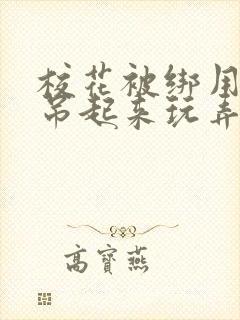 校花被绑用
吊起来玩弄
高寶燕